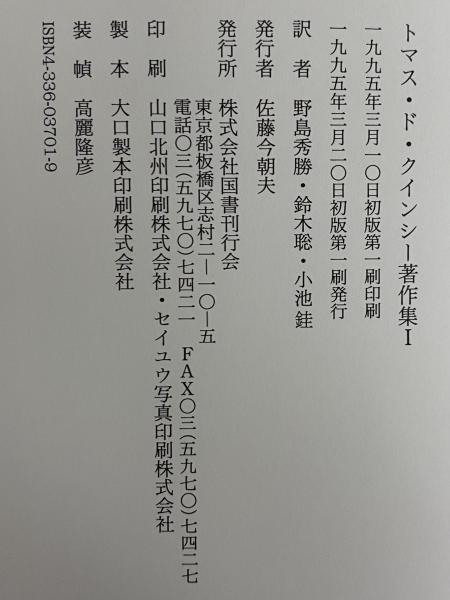 トマス・ド・クインシー著作集Ⅰ
一九九五年三月一〇日初版第一刷印刷
一九九五年三月二〇日初版第一刷発行
訳者 野島秀勝・鈴木聡・小池銈
発行者 佐藤今朝夫
発行所 株式会社国書刊行会
東京都板橋区志村二―一〇―五
電話〇三(五九七〇)七四二一 FAX〇三(五九七〇)七四二七
印刷 山口北州印刷株式会社・セイユウ写真印刷株式会社
製本 大口製本印刷株式会社
装幀 高麗隆彦
ISBN4-336-03701-9